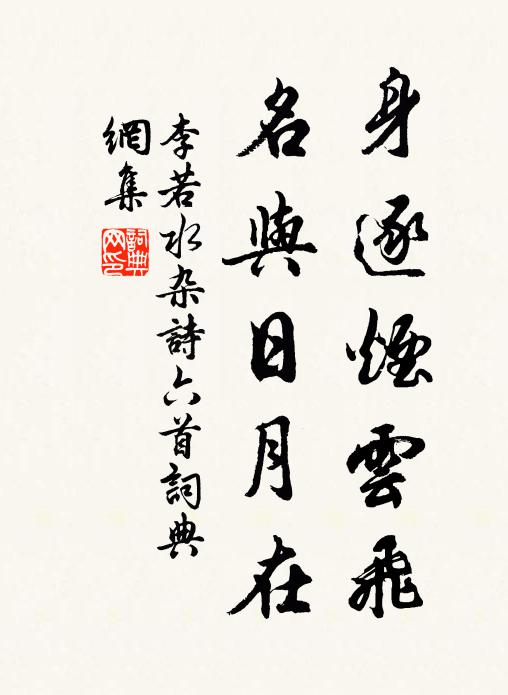 身逐煙雲飛
名與日月在
李若水杂詩六首詞典
網集
詞典
网印